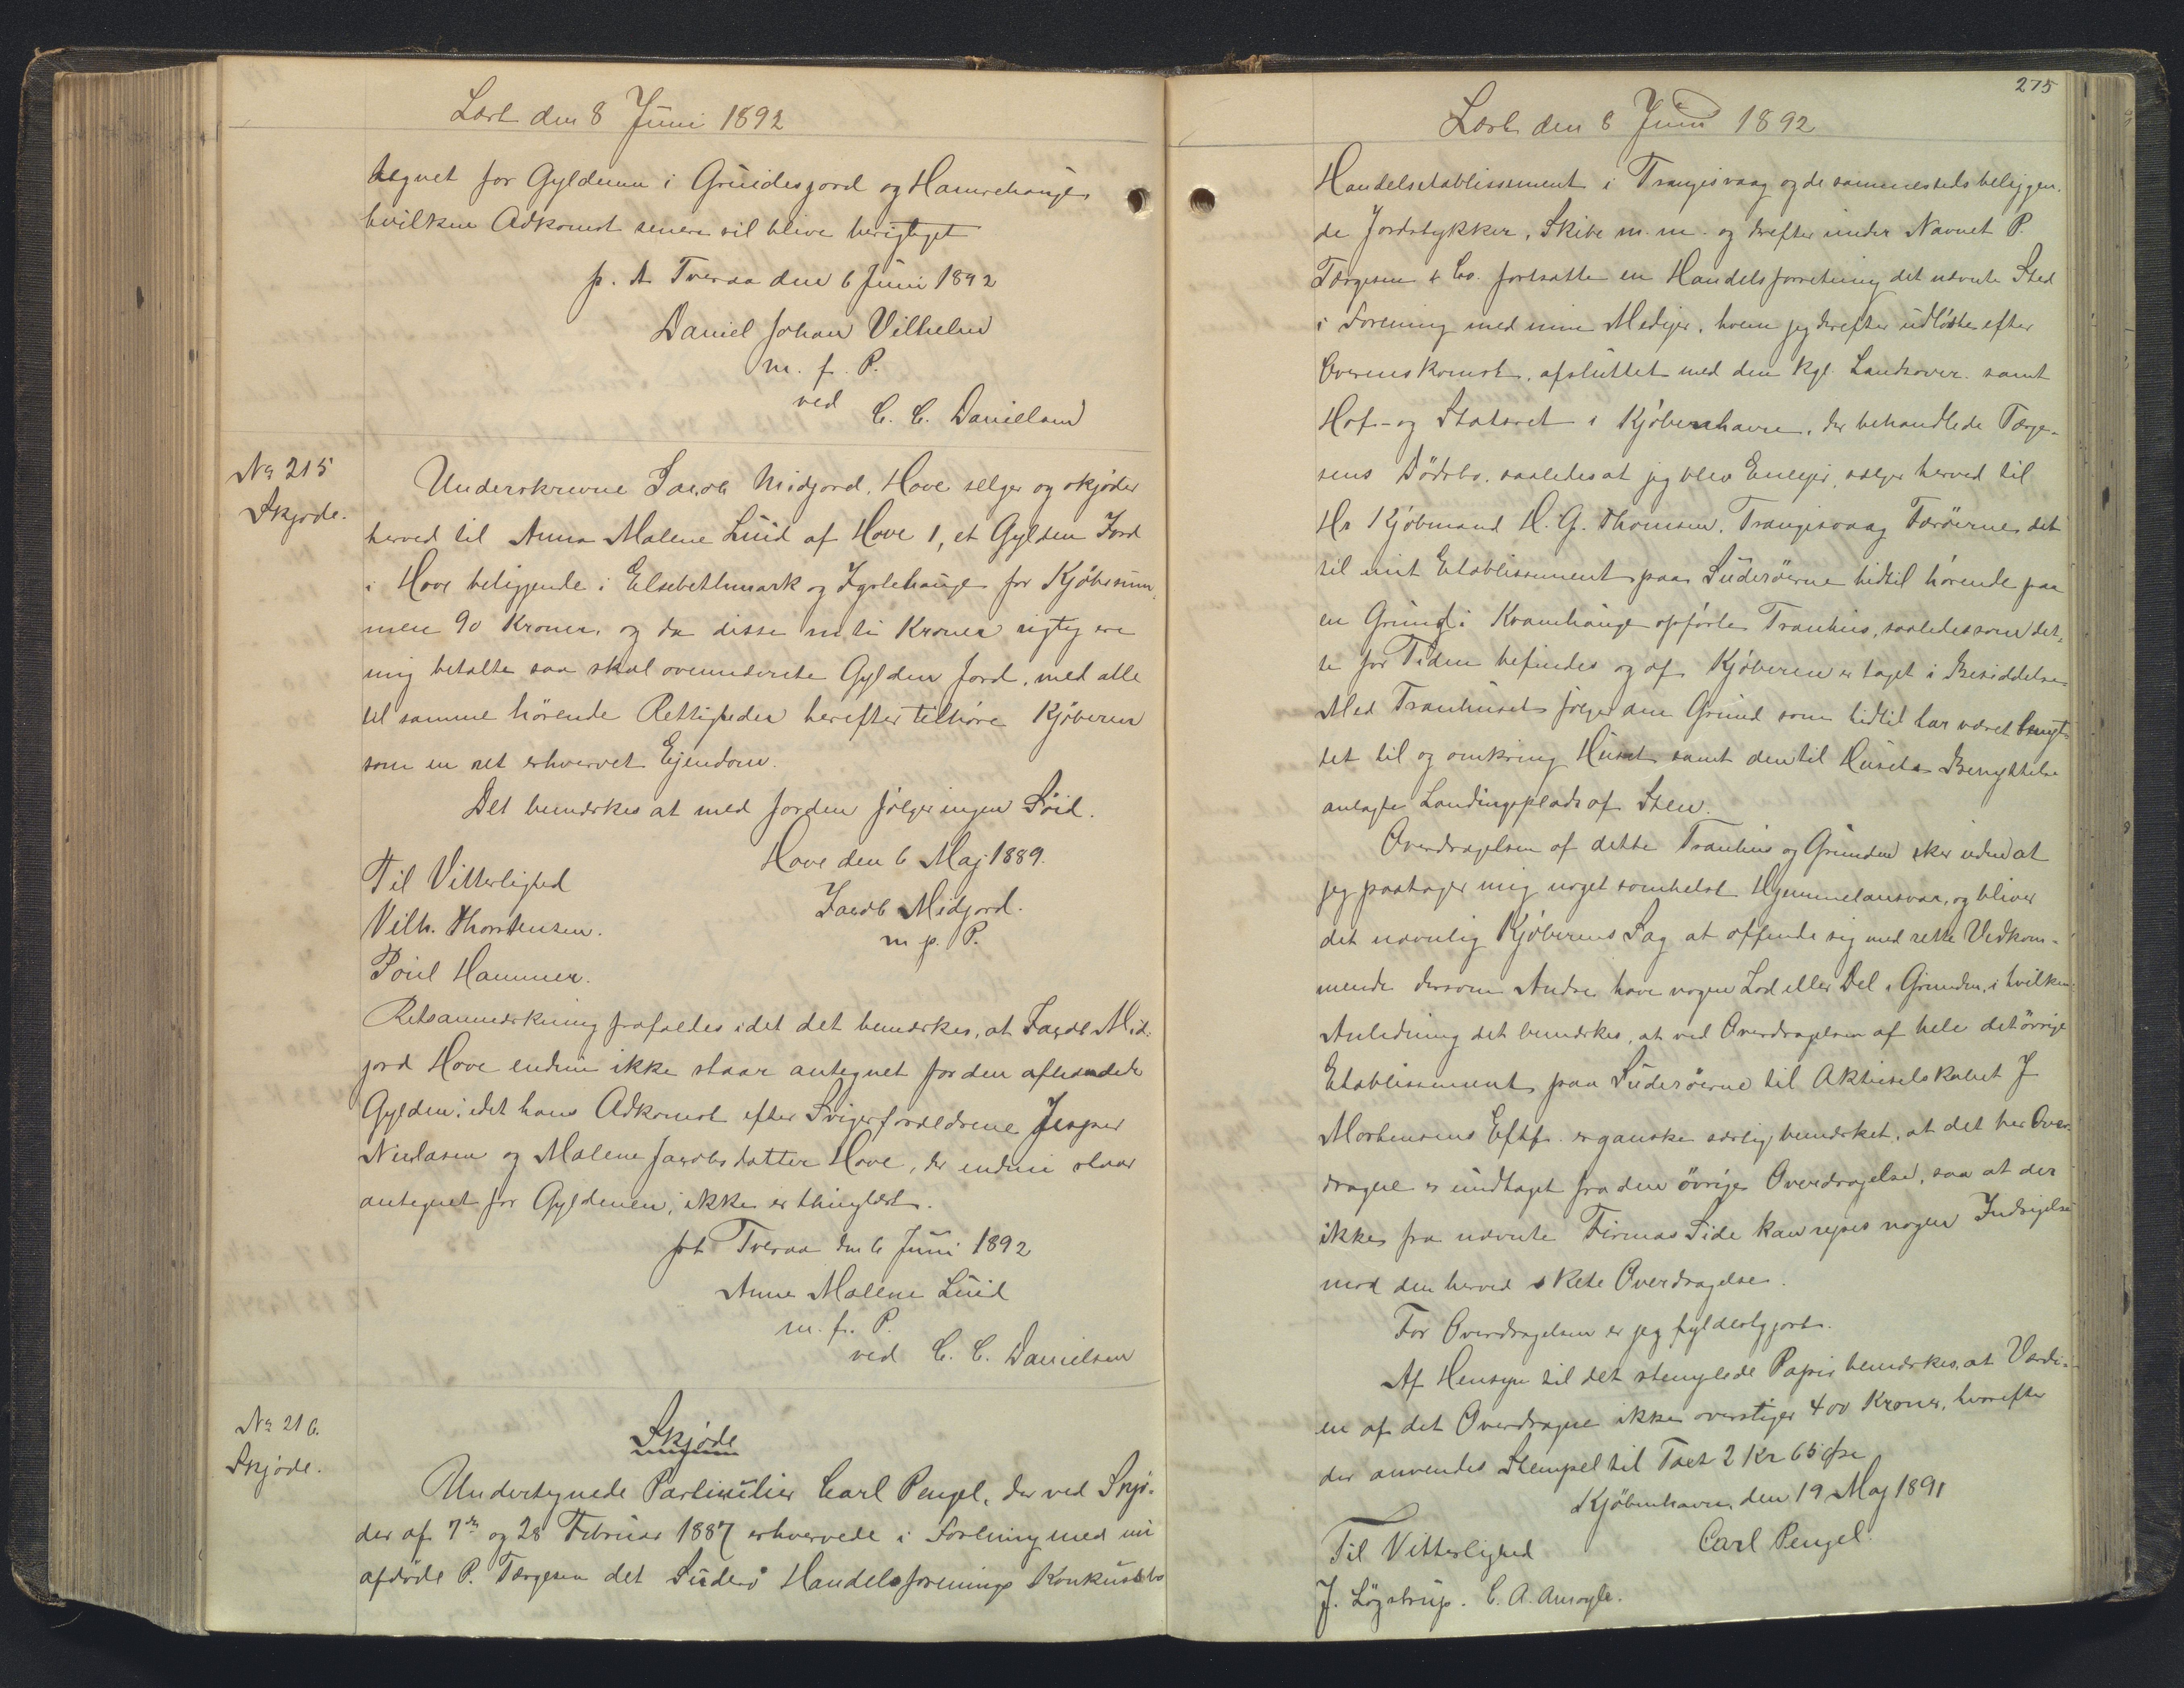 Læst den 8 Juni 1892
tegnet for Gyldenen i Gruidesgjord og Hamrehauge
hvilken Adkomst senere vil blive berigtiget
p. t. Tveraa den 6 Juni 1892
Daniel Johan Vilhelm
m. f. P.
ved C. C. Danielsen
No 215
Skjøde.
Underskrevne Jacob Midjord, Hove selger og skjøder
herved til Anna Malene Luid af Hove 1, et Gylden Jord
i Hove beliggende i Elsebethmark og Igolehauge for Kjøbesum-
men 90 Kroner, og da disse nti Kroner rigtig ere
mig betalte saa skal ovennævnte Gylden Jord, med alle
til samme hørende Rettigheder herefter tilhøre Kjøberen
som en ret erhvervet Ejendom.
Det bemærkes at med Jorden følger ingen Søid.
Hove den 6 Maj 1889.
Til Vitterlighed
Jacob Midjord.
Vilh. Thorstensen.
m p. P.
Poul Hammer.
Retsanmærkning frafaldes idet det bemærkes, at Jacob Mid-
jord Hove endnu ikke staar antegnet for den afhændede
Gylden; idet hans Adkomst efter Svigerforældrene Jesper
Niclasen og Malene Jacobsdatter Hove, der endnu staar
antegnet for Gyldenen, ikke er thinglæst.
pt Tveraa den 6 Juni 1892
Anne Malene Luid
m. f. P.
ved C. C. Danielsen
No 216.
Skjøde.
Skjøde
Undertegnede Partikulier Carl Pengel, der ved Skjø-
der af 7de og 28 Februar 1887 erhvervede i Forening med nu
afdøde P. Tærgesen det Suderø Handelsforenings Konkursbo
275
Læst den 8 Juni 1892
Handelsetablissement i Trangisvaag og de sammesteds beliggen-
de Jordstykker, Skibe m. m. og derefter under Navnet P.
Tærgesen & Co. fortsatte en Handelsforretning det nævnte Sted
i Forening med min Medejer, hvem jeg derefter udløste efter
Overenskomst, afsluttet med den kgl. Landsover- samt
Hof- og Stadsret i Kjøbenhavn, der behandlede Tærge-
sens Dødsbo, saaledes at jeg blev Eneejer, sælger herved til
Hr Kjøbmand H. G. Thomsen, Trangisvaag Færøerne det
til mit Etablissement paa Suderøerne hidtil hørende paa
en Grund i Kvamhauge opførte Tranhus, saaledes som det-
te for Tiden befindes og af Kjøberen er taget i Besiddelse.
Med Tranhuset følger den Grund som hidtil har været benyt-
tet til og omkring Huset samt den til Husets Benyttelse
anlagte Landingsplads af Sten.
Overdragelsen af dette Tranhus og Grunden sker uden at
jeg paatager mig noget somhelst Hjemmelansvar, og bliver
det navnlig Kjøberens Sag at affinde sig med rette Vedkom-
mende dersom Andre have nogen Lod eller Del i Grunden, i hvilken
Anledning det bemærkes, at ved Overdragelsen af hele det øvrige
Etablissement paa Suderøerne til Aktieselskabet J
Mortensens Eftf. er ganske særlig bemærket, at det her Over-
dragne er undtaget fra den øvrige Overdragelse, saa at der
ikke fra nævnte Firmas Side kan rejses nogen Indsigelse
mod den herved skete Overdragelse.
For Overdragelsen er jeg fyldestgjort.
Af Hensyn til det stemplede Papir bemærkes, at Værdi-
en af det Overdragne ikke overstiger 400 Kroner, hvorefter
der anvendes Stempel til Taxt 2 Kr 65 Øre
Kjøbenhavn, den 19 Maj 1891
Til Vitterlighed
Carl Pengel.
J. Løgstrup. C. A.